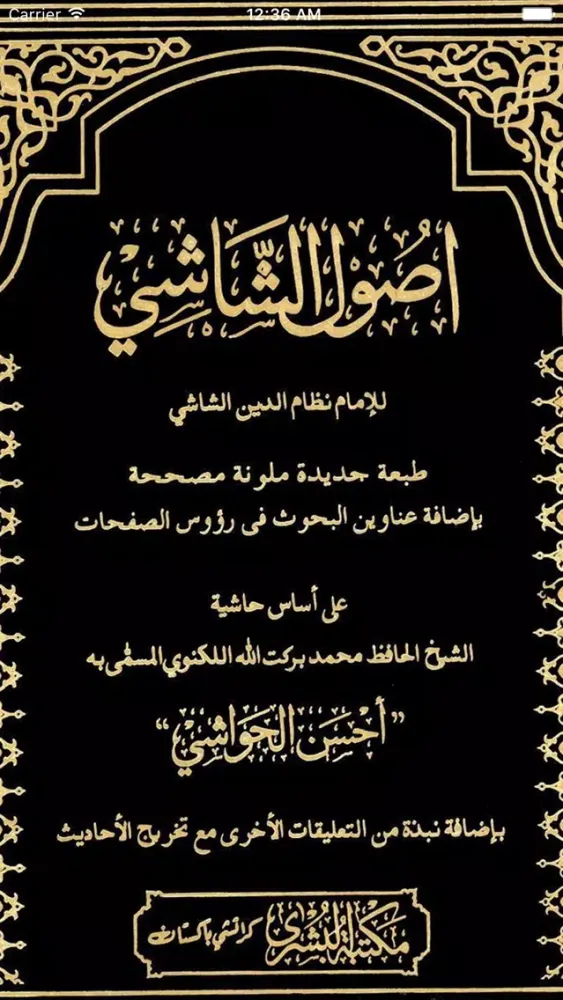 Carrier 12:36 AM
اُصُول الشَّاشِي
للإمام نظام الدين الشاشي
طبعة جديدة ملونة مصححة
بإضافة عناوين البحوث في رؤوس الصفحات
على أساس حاشية
الشيخ الحافظ محمد بركت الله اللكنوي المسمّى به
”أحْسَن الحَوَاشِيْ“
بإضافة نبذة من التعليقات الأخرى مع تخريج الأحاديث
مكتبة البشرى كراتشي پاكستان